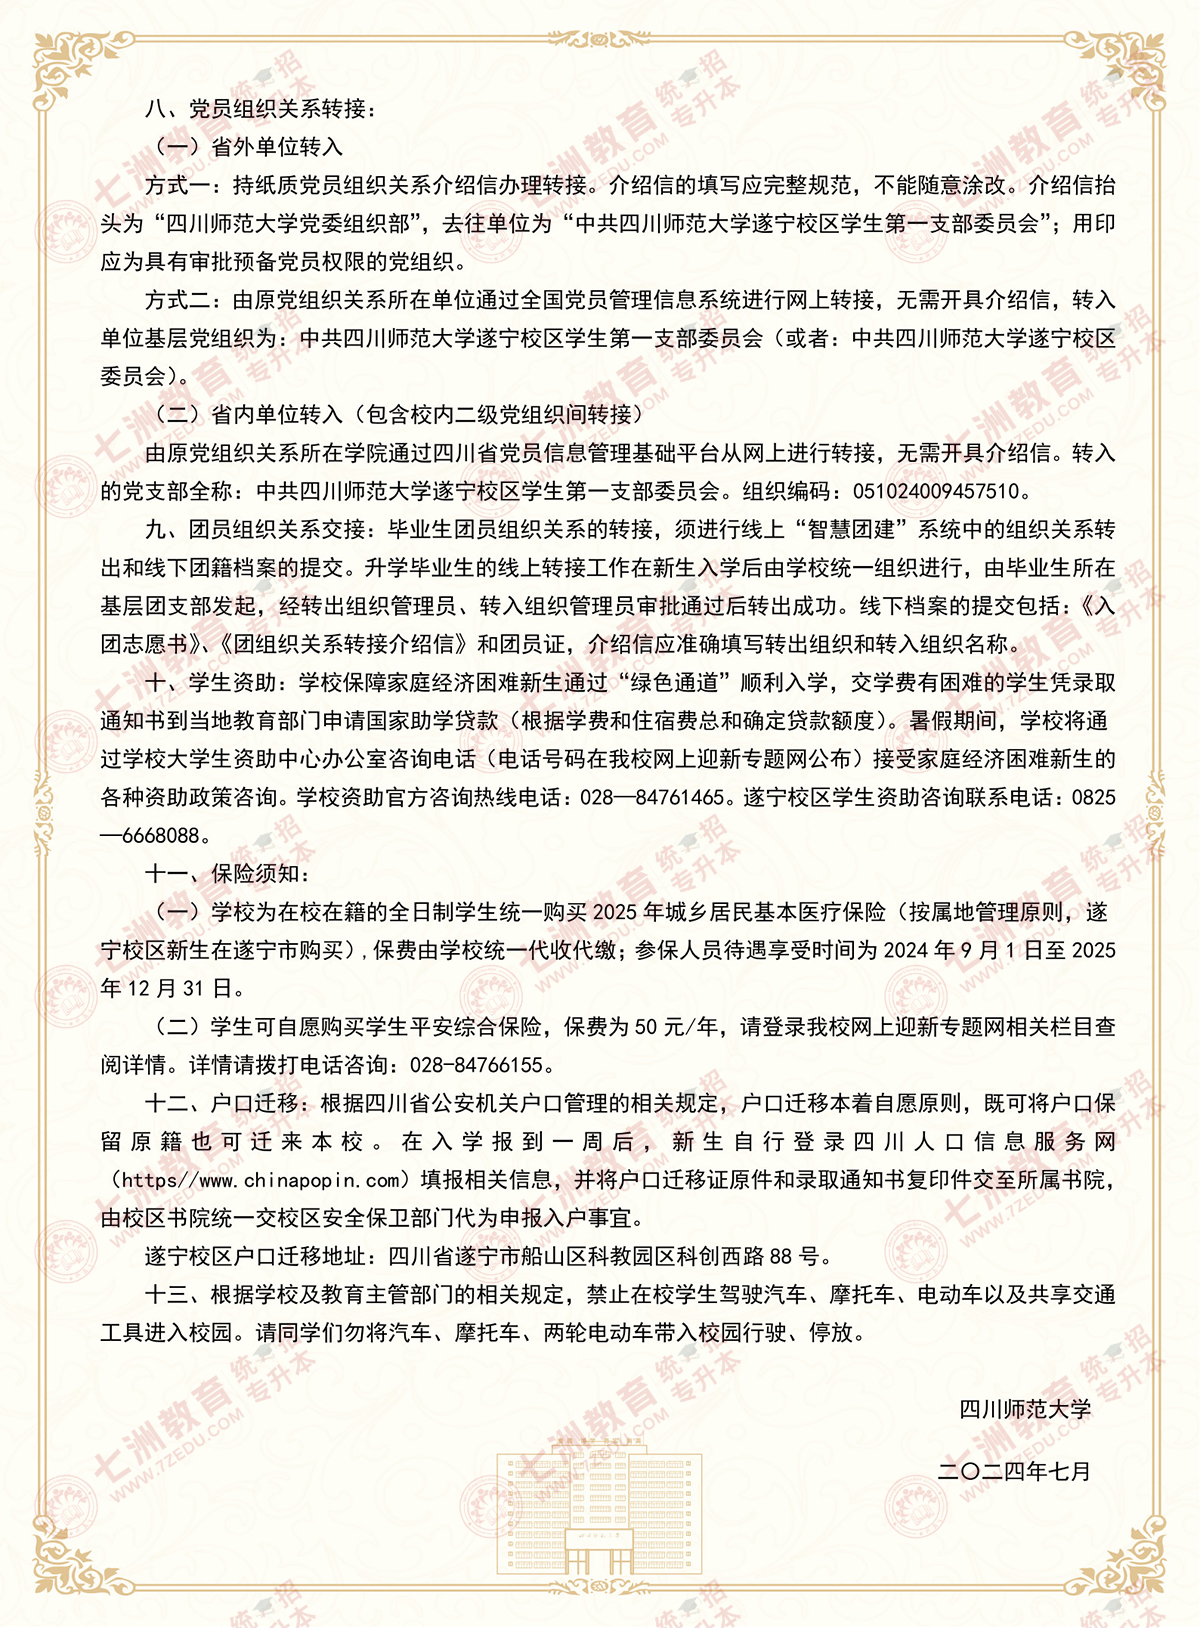 八、党员组织关系转接：
（一）省外单位转入
方式一：持纸质党员组织关系介绍信办理转接。介绍信的填写应完整规范，不能随意涂改。介绍信抬
头为“四川师范大学党委组织部”，去往单位为“中共四川师范大学遂宁校区学生第一支部委员会”；用印
应为具有审批预备党员权限的党组织。
方式二：由原党组织关系所在单位通过全国党员管理信息系统进行网上转接，无需开具介绍信，转入
单位基层党组织为：中共四川师范大学遂宁校区学生第一支部委员会（或者：中共四川师范大学遂宁校区
委员会）。
（二）省内单位转入（包含校内二级党组织间转接）
由原党组织关系所在学院通过四川省党员信息管理基础平台从网上进行转接，无需开具介绍信。转入
的党支部全称：中共四川师范大学遂宁校区学生第一支部委员会。组织编码：051024009457510。
九、团员组织关系交接：毕业生团员组织关系的转接，须进行线上“智慧团建”系统中的组织关系转
出和线下团籍档案的提交。升学毕业生的线上转接工作在新生入学后由学校统一组织进行，由毕业生所在
基层团支部发起，经转出组织管理员、转入组织管理员审批通过后转出成功。线下档案的提交包括：《入
团志愿书》、《团组织关系转接介绍信》和团员证，介绍信应准确填写转出组织和转入组织名称。
十、学生资助：学校保障家庭经济困难新生通过“绿色通道”顺利入学，交学费有困难的学生凭录取
通知书到当地教育部门申请国家助学贷款（根据学费和住宿费总和确定贷款额度）。暑假期间，学校将通
过学校大学生资助中心办公室咨询电话（电话号码在我校网上迎新专题网公布）接受家庭经济困难新生的
各种资助政策咨询。学校资助官方咨询热线电话：028—84761465。遂宁校区学生资助咨询联系电话：0825
—6668088。
十一、保险须知：
（一）学校为在校在籍的全日制学生统一购买 2025 年城乡居民基本医疗保险（按属地管理原则，遂
宁校区新生在遂宁市购买），保费由学校统一代收代缴；参保人员待遇享受时间为 2024 年 9 月 1 日至 2025
年 12 月 31 日。
（二）学生可自愿购买学生平安综合保险，保费为 50 元/年，请登录我校网上迎新专题网相关栏目查
阅详情。详情请拨打电话咨询：028-84766155。
十二、户口迁移：根据四川省公安机关户口管理的相关规定，户口迁移本着自愿原则，既可将户口保
留原籍也可迁来本校。在入学报到一周后，新生自行登录四川人口信息服务网
（https//www.chinapopin.com）填报相关信息，并将户口迁移证原件和录取通知书复印件交至所属书院，
由校区书院统一交校区安全保卫部门代为申报入户事宜。
遂宁校区户口迁移地址：四川省遂宁市船山区科教园区科创西路 88 号。
十三、根据学校及教育主管部门的相关规定，禁止在校学生驾驶汽车、摩托车、电动车以及共享交通
工具进入校园。请同学们勿将汽车、摩托车、两轮电动车带入校园行驶、停放。
四川师范大学
二〇二四年七月
七洲教育 统招专升本
WWW.7ZEDU.COM